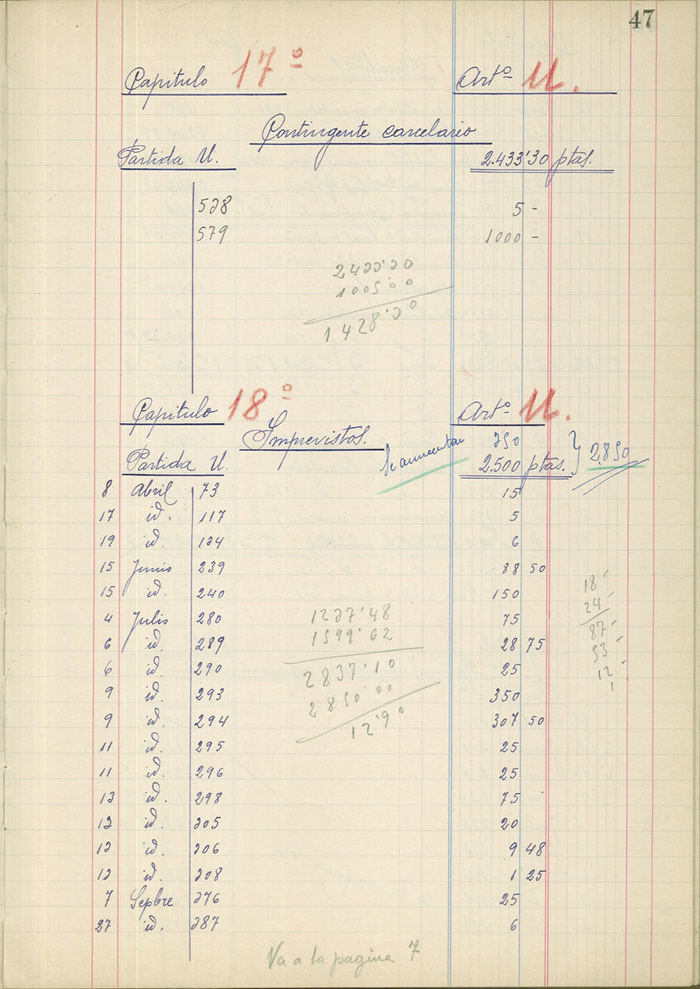 47
Capitulo 17º Artº U.
Contingente carcelario
Partida U. 2.433'30 ptas.
538 5 -
579 1000 -
2433'30
1005'00
1428'30
Capitulo 18º Artº U.
Imprevistos.
350
Partida U. 2.500 ptas. } 2.850
8 Abril 73 15
17 id. 117 5
19 id. 134 6
15 Junio 239 88 50
15 id. 240 150
4 Julio 280 75
6 id. 289 28 75
6 id. 290 25
9 id. 293 350
9 id. 294 307 50
11 id. 295 25
11 id. 296 25
13 id. 298 75
13 id. 305 20
13 id. 306 9 48
13 id. 308 1 25
7 Sepbre 376 25
27 id. 387 6
1237'48
1599'62
2837'10
2850'00
12'90
18
24
87
53
12
1
Va a la pagina 7